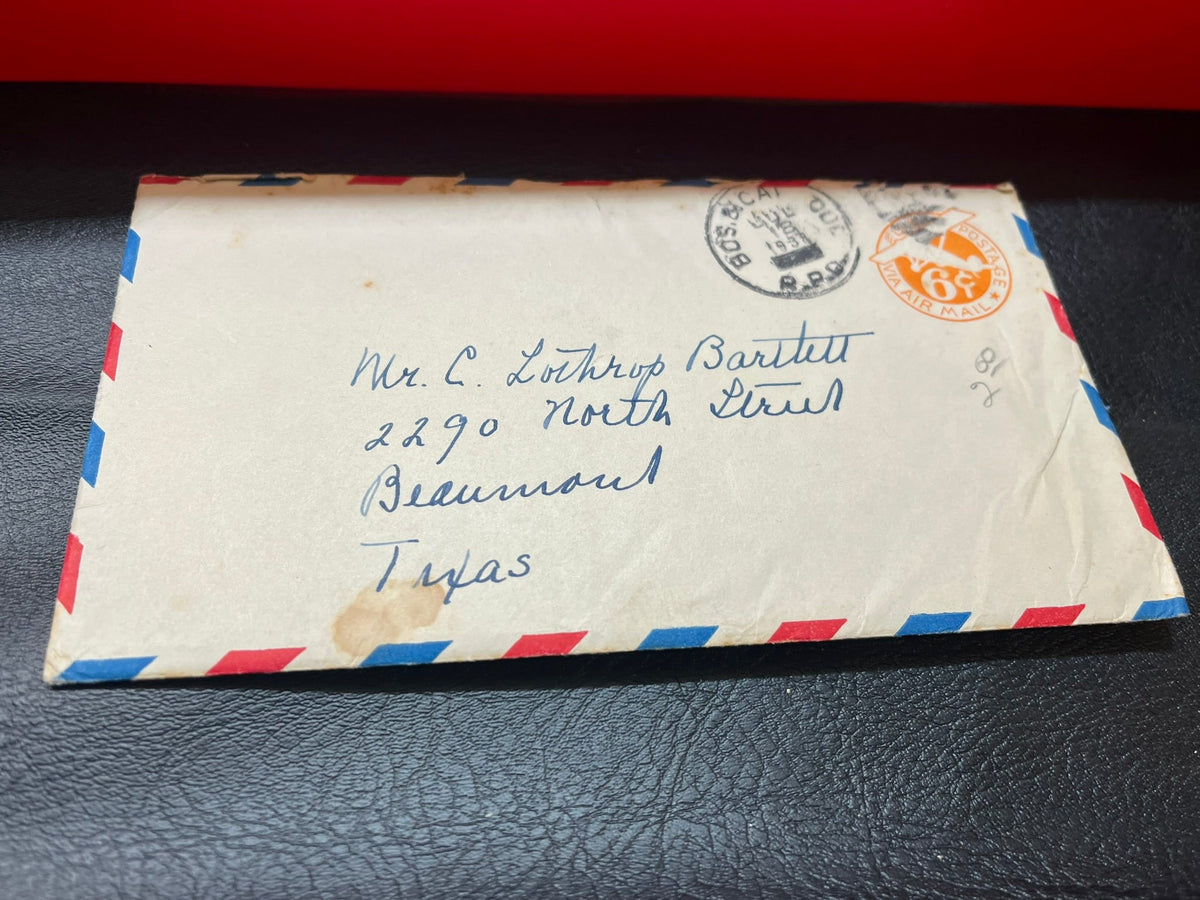 BOS. & CAP COD
R.P.O.
POSTAGE
6¢
VIA AIR MAIL
Mr. C. Lothrop Bartlett
2290 North Street
Beaumont
Texas